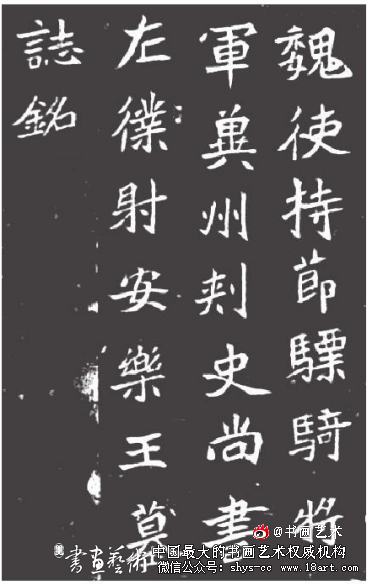 魏使持節驃騎將
軍冀州刾史尚書
左僕射安樂王墓
誌銘
@书画艺术
書畫藝術
中国最大的书画艺术权威机构
微信公众号：shys-cc www.18art.com